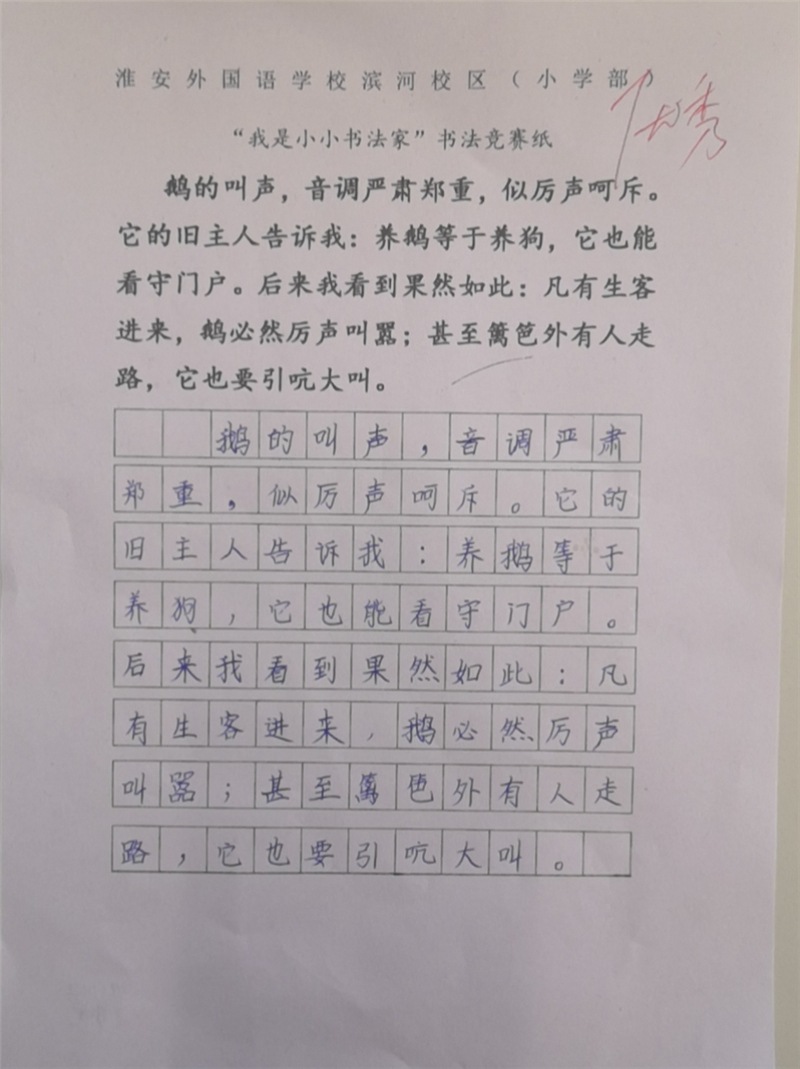 淮安外国语学校滨河校区（小学部）
“我是小小书法家”书法竞赛纸
优秀
鹅的叫声，音调严肃郑重，似厉声呵斥。
它的旧主人告诉我：养鹅等于养狗，它也能
看守门户。后来我看到果然如此：凡有生客
进来，鹅必然厉声叫嚣；甚至篱笆外有人走
路，它也要引吭大叫。
鹅的叫声，音调严肃
郑重，似厉声呵斥。它的
旧主人告诉我：养鹅等于
养狗，它也能看守门户。
后来我看到果然如此：凡
有生客进来，鹅必然厉声
叫嚣；甚至篱笆外有人走
路，它也要引吭大叫。